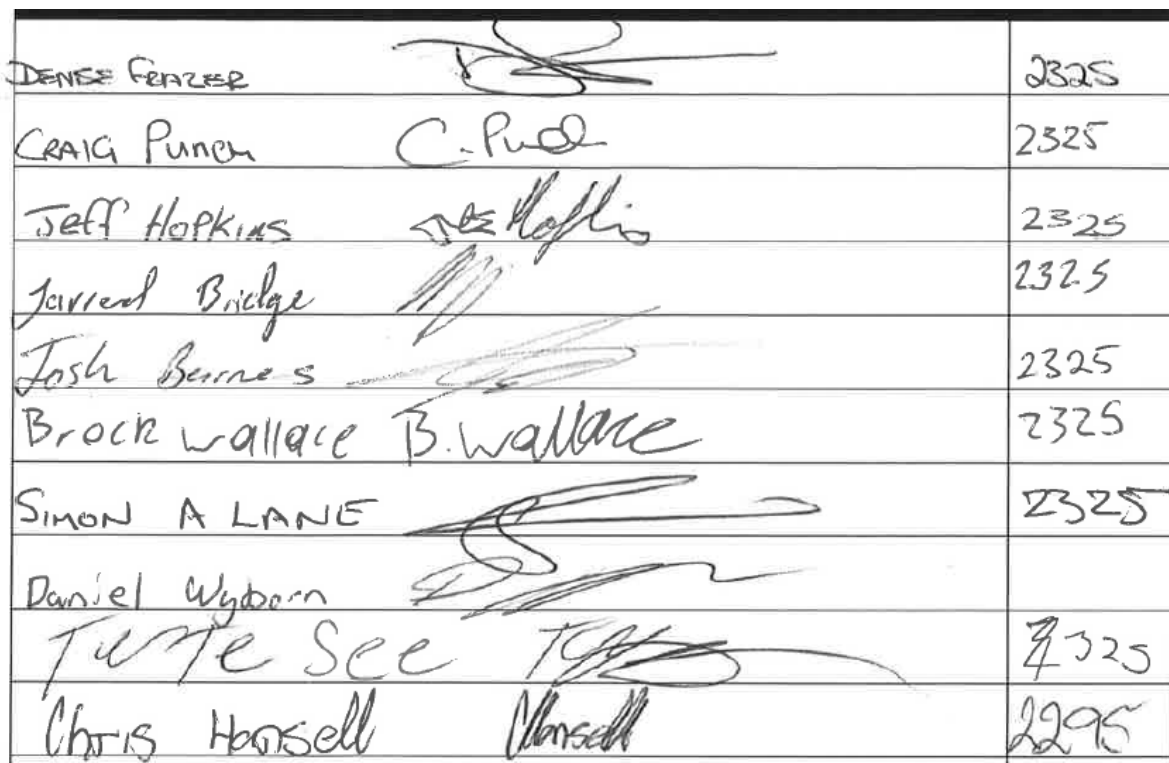 DENSE FRAZER 2325
CRAIG PUNCH C. Punch 2325
Jeff Hopkins 2325
Jarred Bridge 2325
Josh 2325
Brock wallace B. wallace 2325
SIMON A LANE 2325
Daniel Wyborn
See 2325
Chris Hansell CHansell 2295